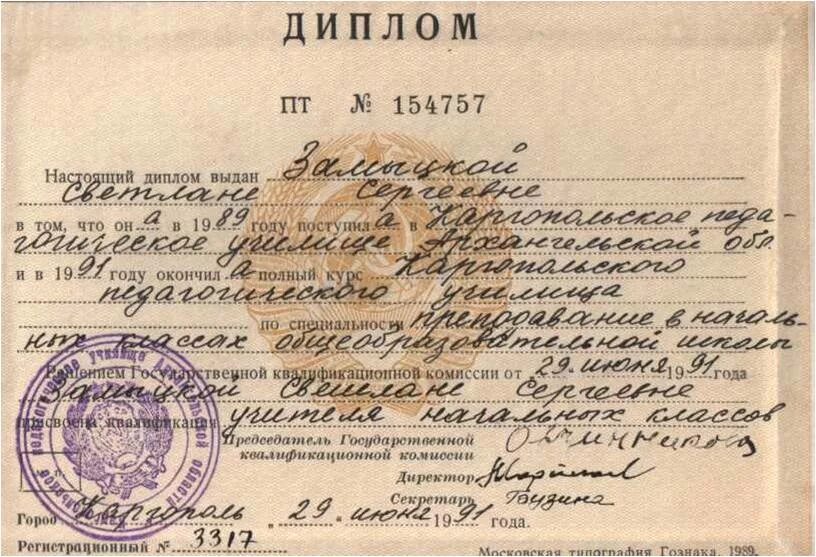 ДИПЛОМ
ПТ № 154757
Настоящий диплом выдан Замыцкой
Светлане Сергеевне
в том, что он а в 1989 году поступил а в Каргопольское педа-
гогическое училище Архангельской обл.
и в 1991 году окончил а полный курс Каргопольского
педагогического училища
по специальности преподавание в началь-
ных классах общеобразовательной школы
Решением Государственной квалификационной комиссии от 29 июня 1991 года
Замыцкой Светлане Сергеевне
присвоена квалификация учителя начальных классов
Председатель Государственной
квалификационной комиссии
Директор
Секретарь Бузина
Город Каргополь „29“ июня 1991 года.
Регистрационный № 3317
Московская типография Гознака. 1989.